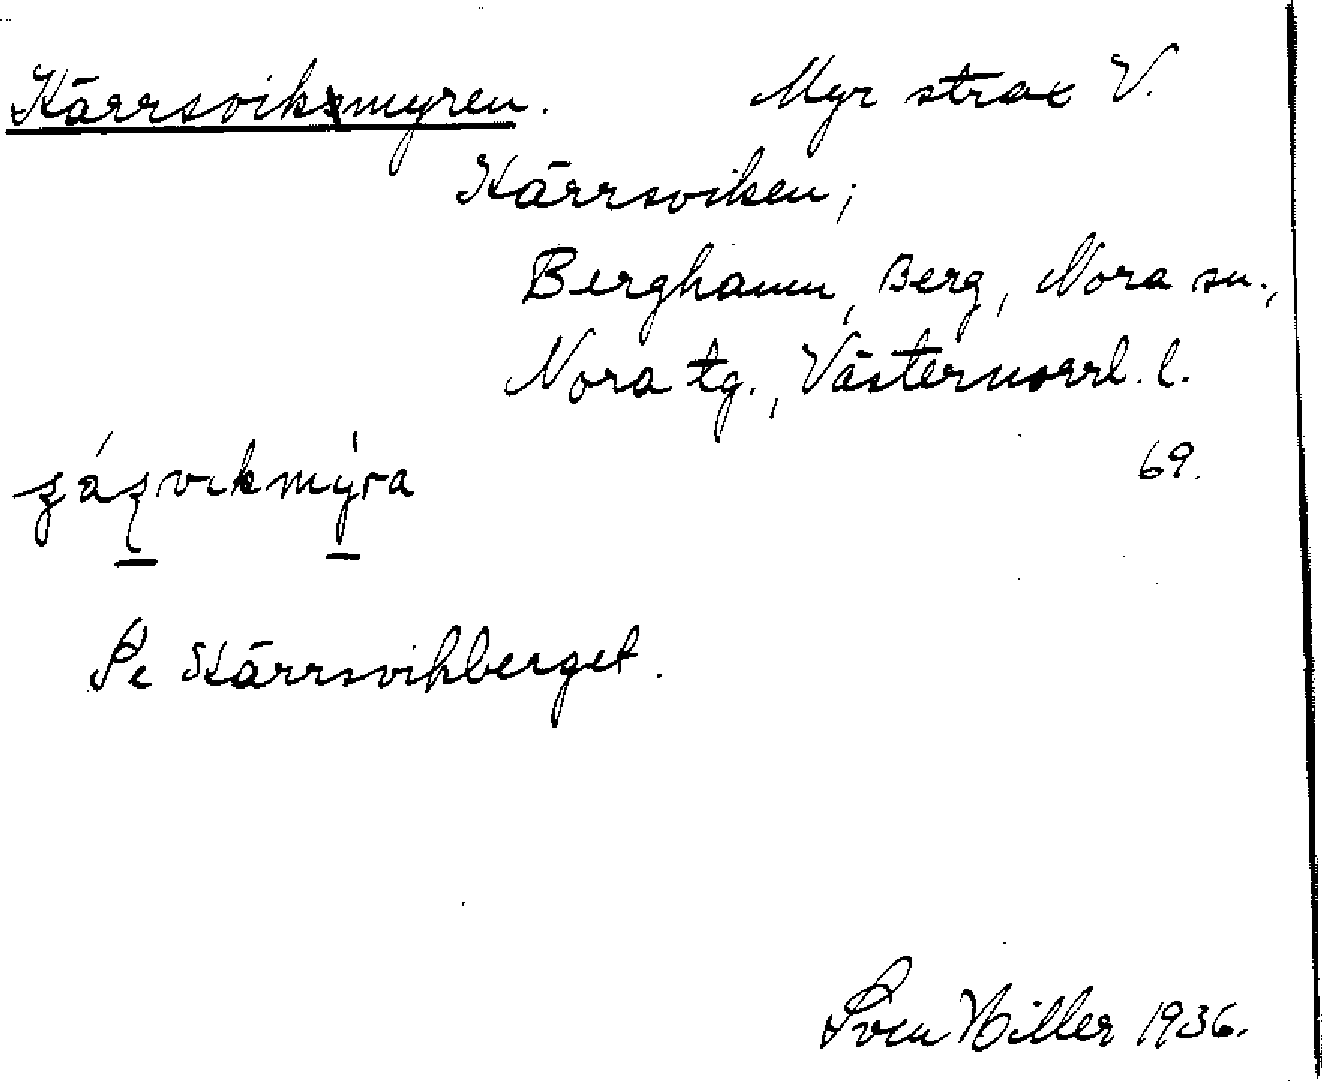 Kärrsvikmyren. Myr strax V.
Kärrsviken;
Berghamn, Berg, Nora sn.,
Nora tg., Västernorrl. l.
69.
Se Kärrsvikberget.
Sven Hiller 1936.